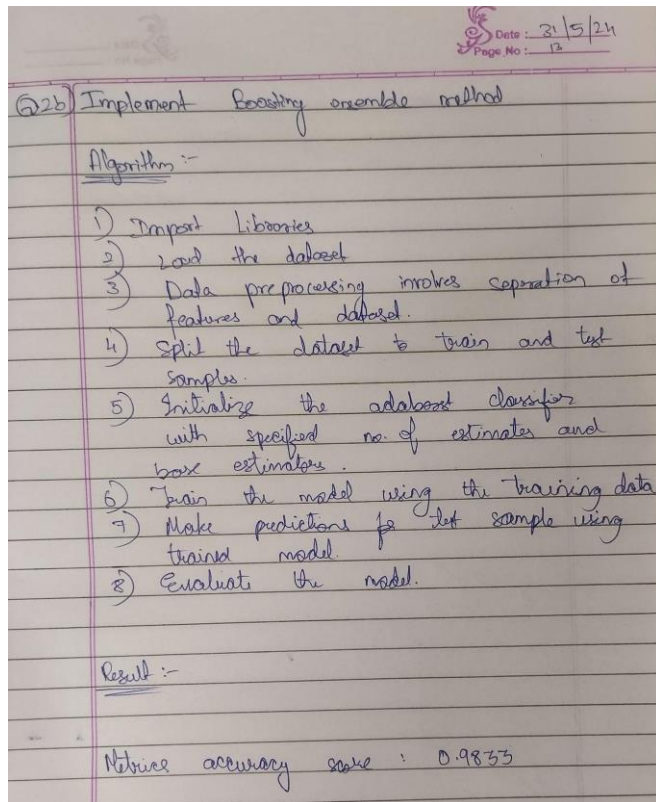 Date : 31/5/24
Page No : 13
Q2b) Implement Boosting ensemble method
Algorithm :-
1) Import Libraries
2) Load the dataset
3) Data preprocessing involves seperation of
features and dataset.
4) Split the dataset to train and test
samples.
5) Initialize the adaboost classifier
with specified no. of estimates and
base estimators.
6) Train the model using the training data
7) Make predictions for test sample using
trained model.
8) Evaluate the model.
Result :-
Metrics accuracy score : 0.9833